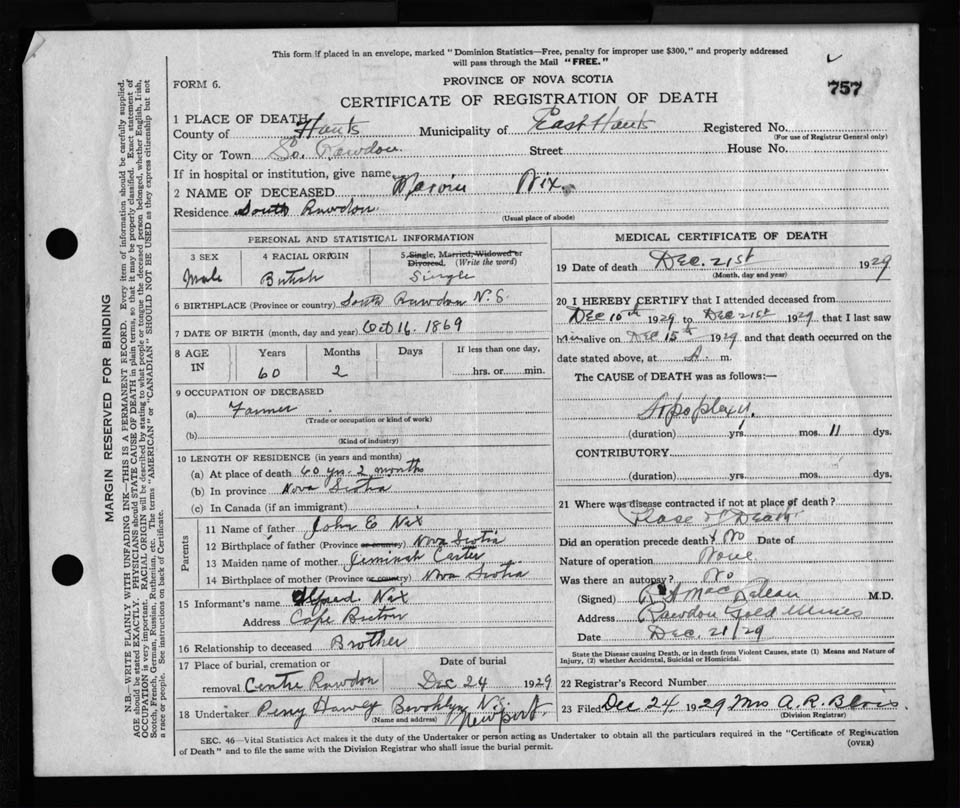 This form if placed in an envelope, marked "Dominion Statistics—Free, penalty for improper use $300," and properly addressed
will pass through the Mail "FREE."
FORM 6.
PROVINCE OF NOVA SCOTIA
757
CERTIFICATE OF REGISTRATION OF DEATH
1 PLACE OF DEATH
County of Hants Municipality of East Hants Registered No.
(For use of Registrar General only)
City or Town So. Rawdon Street House No.
If in hospital or institution, give name
2 NAME OF DECEASED Marvin Nix
Residence South Rawdon
(Usual place of abode)
PERSONAL AND STATISTICAL INFORMATION
3 SEX 4 RACIAL ORIGIN 5 Single, Married, Widowed or Divorced. (Write the word)
Male British Single
6 BIRTHPLACE (Province or country) South Rawdon N.S.
7 DATE OF BIRTH (month, day and year) Oct 16. 1869
8 AGE IN Years Months Days If less than one day,
60 2 hrs. or min.
9 OCCUPATION OF DECEASED
(a) Farmer
(Trade or occupation or kind of work)
(b)
(Kind of industry)
10 LENGTH OF RESIDENCE (in years and months)
(a) At place of death 60 yr. 2 months
(b) In province Nova Scotia
(c) In Canada (if an immigrant)
Parents
11 Name of father John E Nix
12 Birthplace of father (Province or country) Nova Scotia
13 Maiden name of mother Jiminah Carter
14 Birthplace of mother (Province or country) Nova Scotia
15 Informant's name Alfred Nix
Address Cape Breton
16 Relationship to deceased Brother
17 Place of burial, cremation or Date of burial
removal Centre Rawdon Dec 24 1929
18 Undertaker Percy Harvey Brooklyn N.S. Newport
(Name and address)
MEDICAL CERTIFICATE OF DEATH
19 Date of death Dec. 21st 1929
(Month, day and year)
20 I HEREBY CERTIFY that I attended deceased from
Dec 10th 1929 to Dec 21st 1929 that I last saw
him alive on Dec 15th 1929 and that death occurred on the
date stated above, at A. m.
The CAUSE of DEATH was as follows:—
Apoplexy.
(duration) yrs. mos. 11 dys.
CONTRIBUTORY
(duration) yrs. mos. dys.
21 Where was disease contracted if not at place of death?
Place of Death
Did an operation precede death? No Date of
Nature of operation None
Was there an autopsy? No
(Signed) R A MacLellan M.D.
Address Rawdon Gold Mines
Date Dec. 21/29
State the Disease causing Death, or in death from Violent Causes, state (1) Means and Nature of
Injury, (2) whether Accidental, Suicidal or Homicidal.
22 Registrar's Record Number
23 Filed Dec 24 1929 Mrs A. R. Blois
(Division Registrar)
SEC. 46—Vital Statistics Act makes it the duty of the Undertaker or person acting as Undertaker to obtain all the particulars required in the "Certificate of Registration
of Death" and to file the same with the Division Registrar who shall issue the burial permit.
(OVER)
MARGIN RESERVED FOR BINDING
N.B.—WRITE PLAINLY WITH UNFADING INK—THIS IS A PERMANENT RECORD. Every item of information should be carefully supplied.
AGE should be stated EXACTLY. PHYSICIANS should STATE CAUSE OF DEATH in plain terms, so that it may be properly classified. Exact statement of
OCCUPATION is very important. RACIAL ORIGIN will be described by stating to what people or tongue the deceased person belonged, whether English, Irish,
Scotch, French, German, Russian, Ruthenian, etc. The terms "AMERICAN" or "CANADIAN" SHOULD NOT BE USED as they express citizenship but not
a race or people. See instructions on back of Certificate.